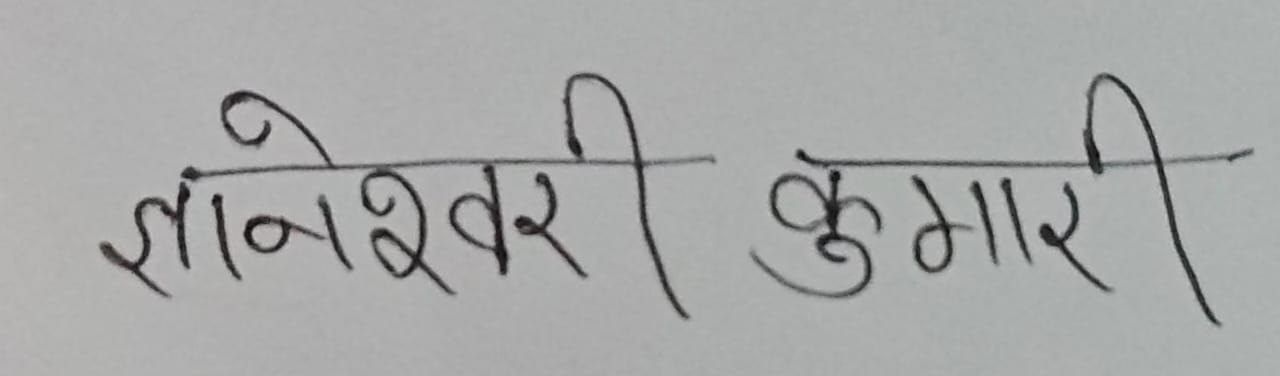 ज्ञानेश्वरी कुमारी